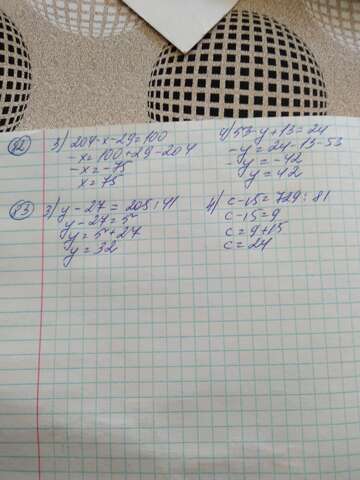 82 3) 204-x-29=100
-x=100+29-204
-x=-75
x=75
4) 53-y+13=24
-y=24-13-53
-y=-42
y=42
83 3) y-27=205:41
y-27=5
y=5+27
y=32
4) c-15=729:81
c-15=9
c=9+15
c=24